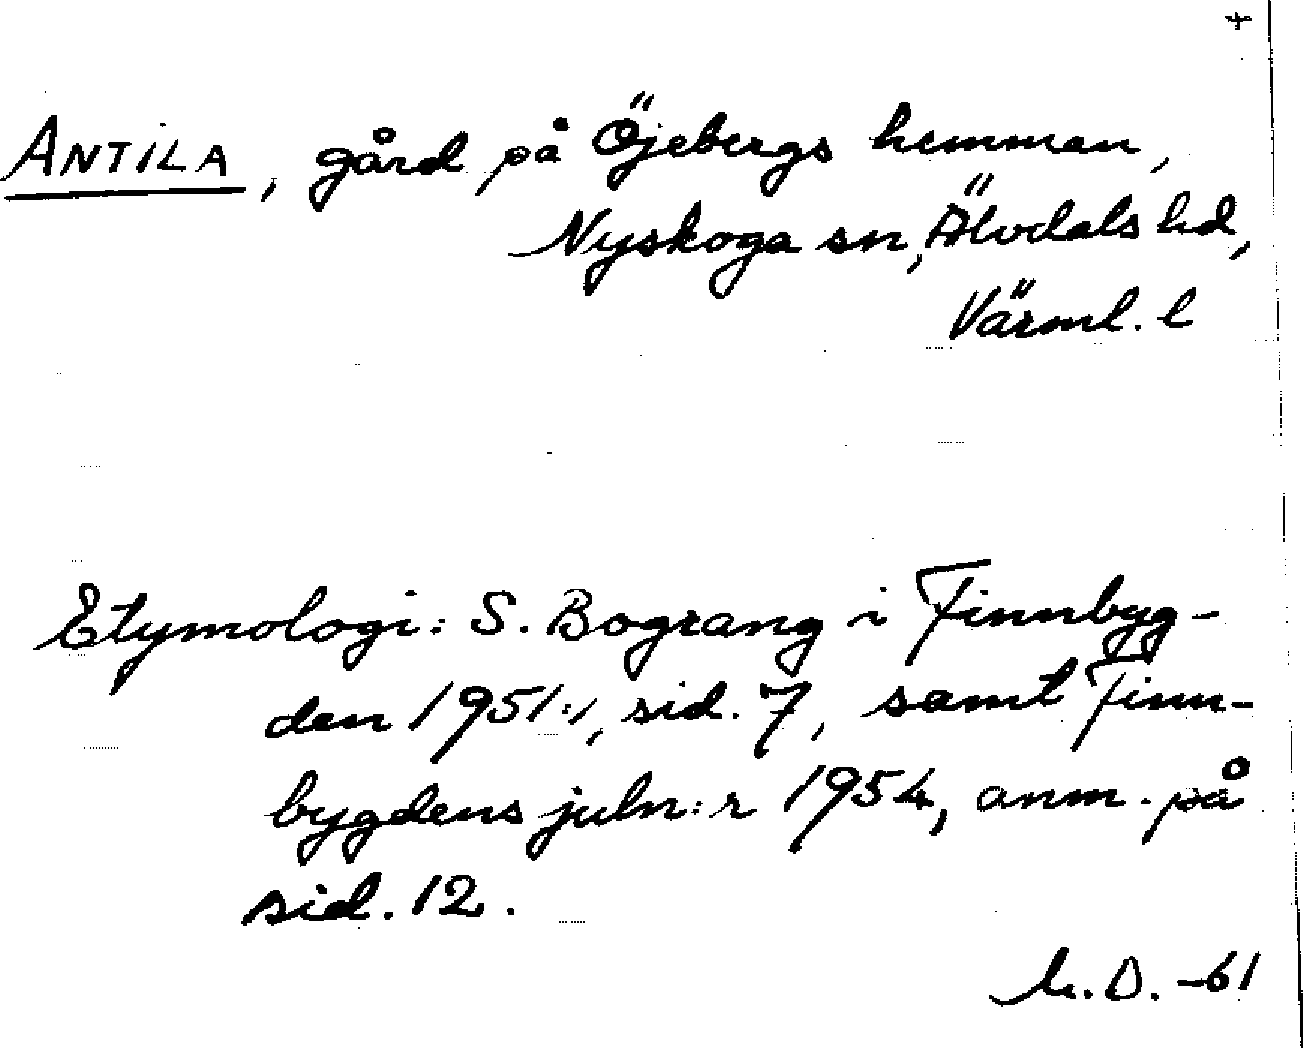 ANTILA, gård på Öjebergs hemman,
Nyskoga sn, Älvdals hd,
Värml. l
Etymologi: S. Bograng i Finnbyg-
den 1951:1, sid. 7, samt Finn-
bygdens juln:r 1954, anm. på
sid. 12.
D. -61